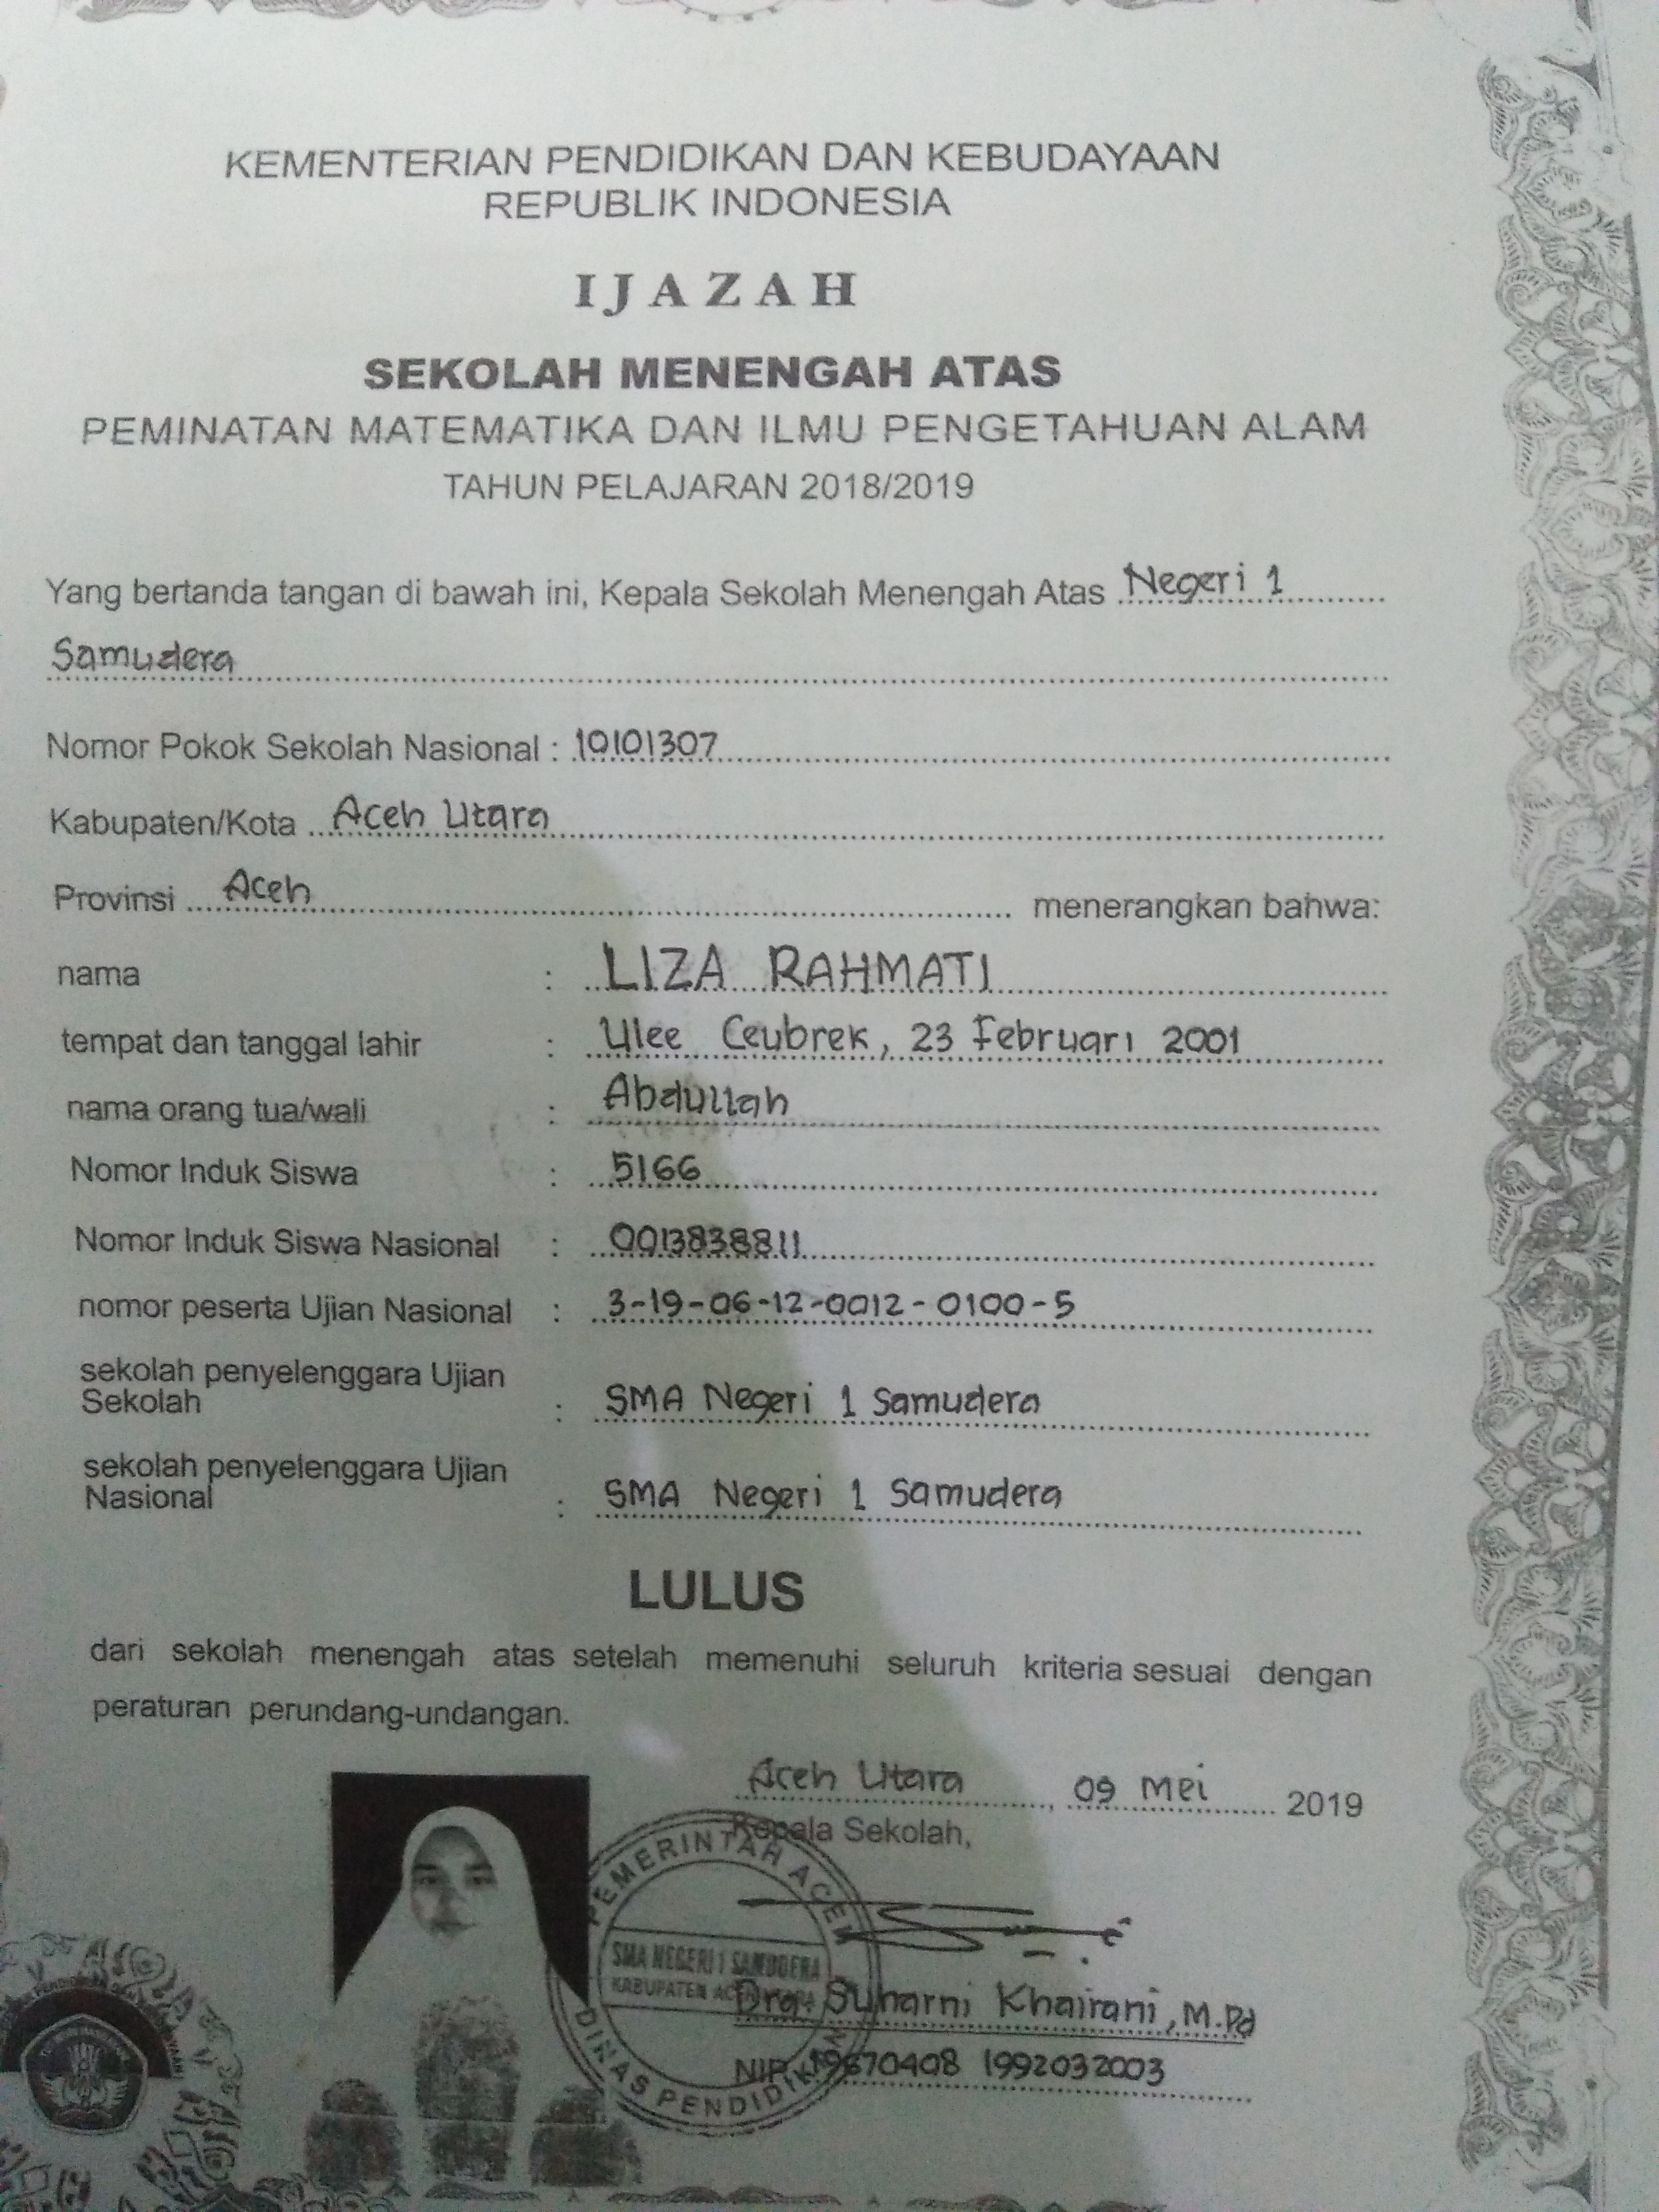 KEMENTERIAN PENDIDIKAN DAN KEBUDAYAAN
REPUBLIK INDONESIA
IJAZAH
SEKOLAH MENENGAH ATAS
PEMINATAN MATEMATIKA DAN ILMU PENGETAHUAN ALAM
TAHUN PELAJARAN 2018/2019
Yang bertanda tangan di bawah ini, Kepala Sekolah Menengah Atas Negeri 1
Samudera
Nomor Pokok Sekolah Nasional : 10101307
Kabupaten/Kota Aceh Utara
Provinsi Aceh menerangkan bahwa:
nama : LIZA RAHMATI
tempat dan tanggal lahir : Ulee Ceubrek, 23 Februari 2001
nama orang tua/wali : Abdullah
Nomor Induk Siswa : 5166
Nomor Induk Siswa Nasional : 0013838811
nomor peserta Ujian Nasional : 3-19-06-12-0012-0100-5
sekolah penyelenggara Ujian
Sekolah : SMA Negeri 1 Samudera
sekolah penyelenggara Ujian
Nasional : SMA Negeri 1 Samudera
LULUS
dari sekolah menengah atas setelah memenuhi seluruh kriteria sesuai dengan
peraturan perundang-undangan.
Aceh Utara, 09 Mei 2019
Kepala Sekolah,
PEMERINTAH ACEH
SMA NEGERI 1 SAMUDERA
KABUPATEN ACEH UTARA
DINAS PENDIDIKAN
Dra. Suharni Khairani, M.Pd
NIP. 19670408 1992032003